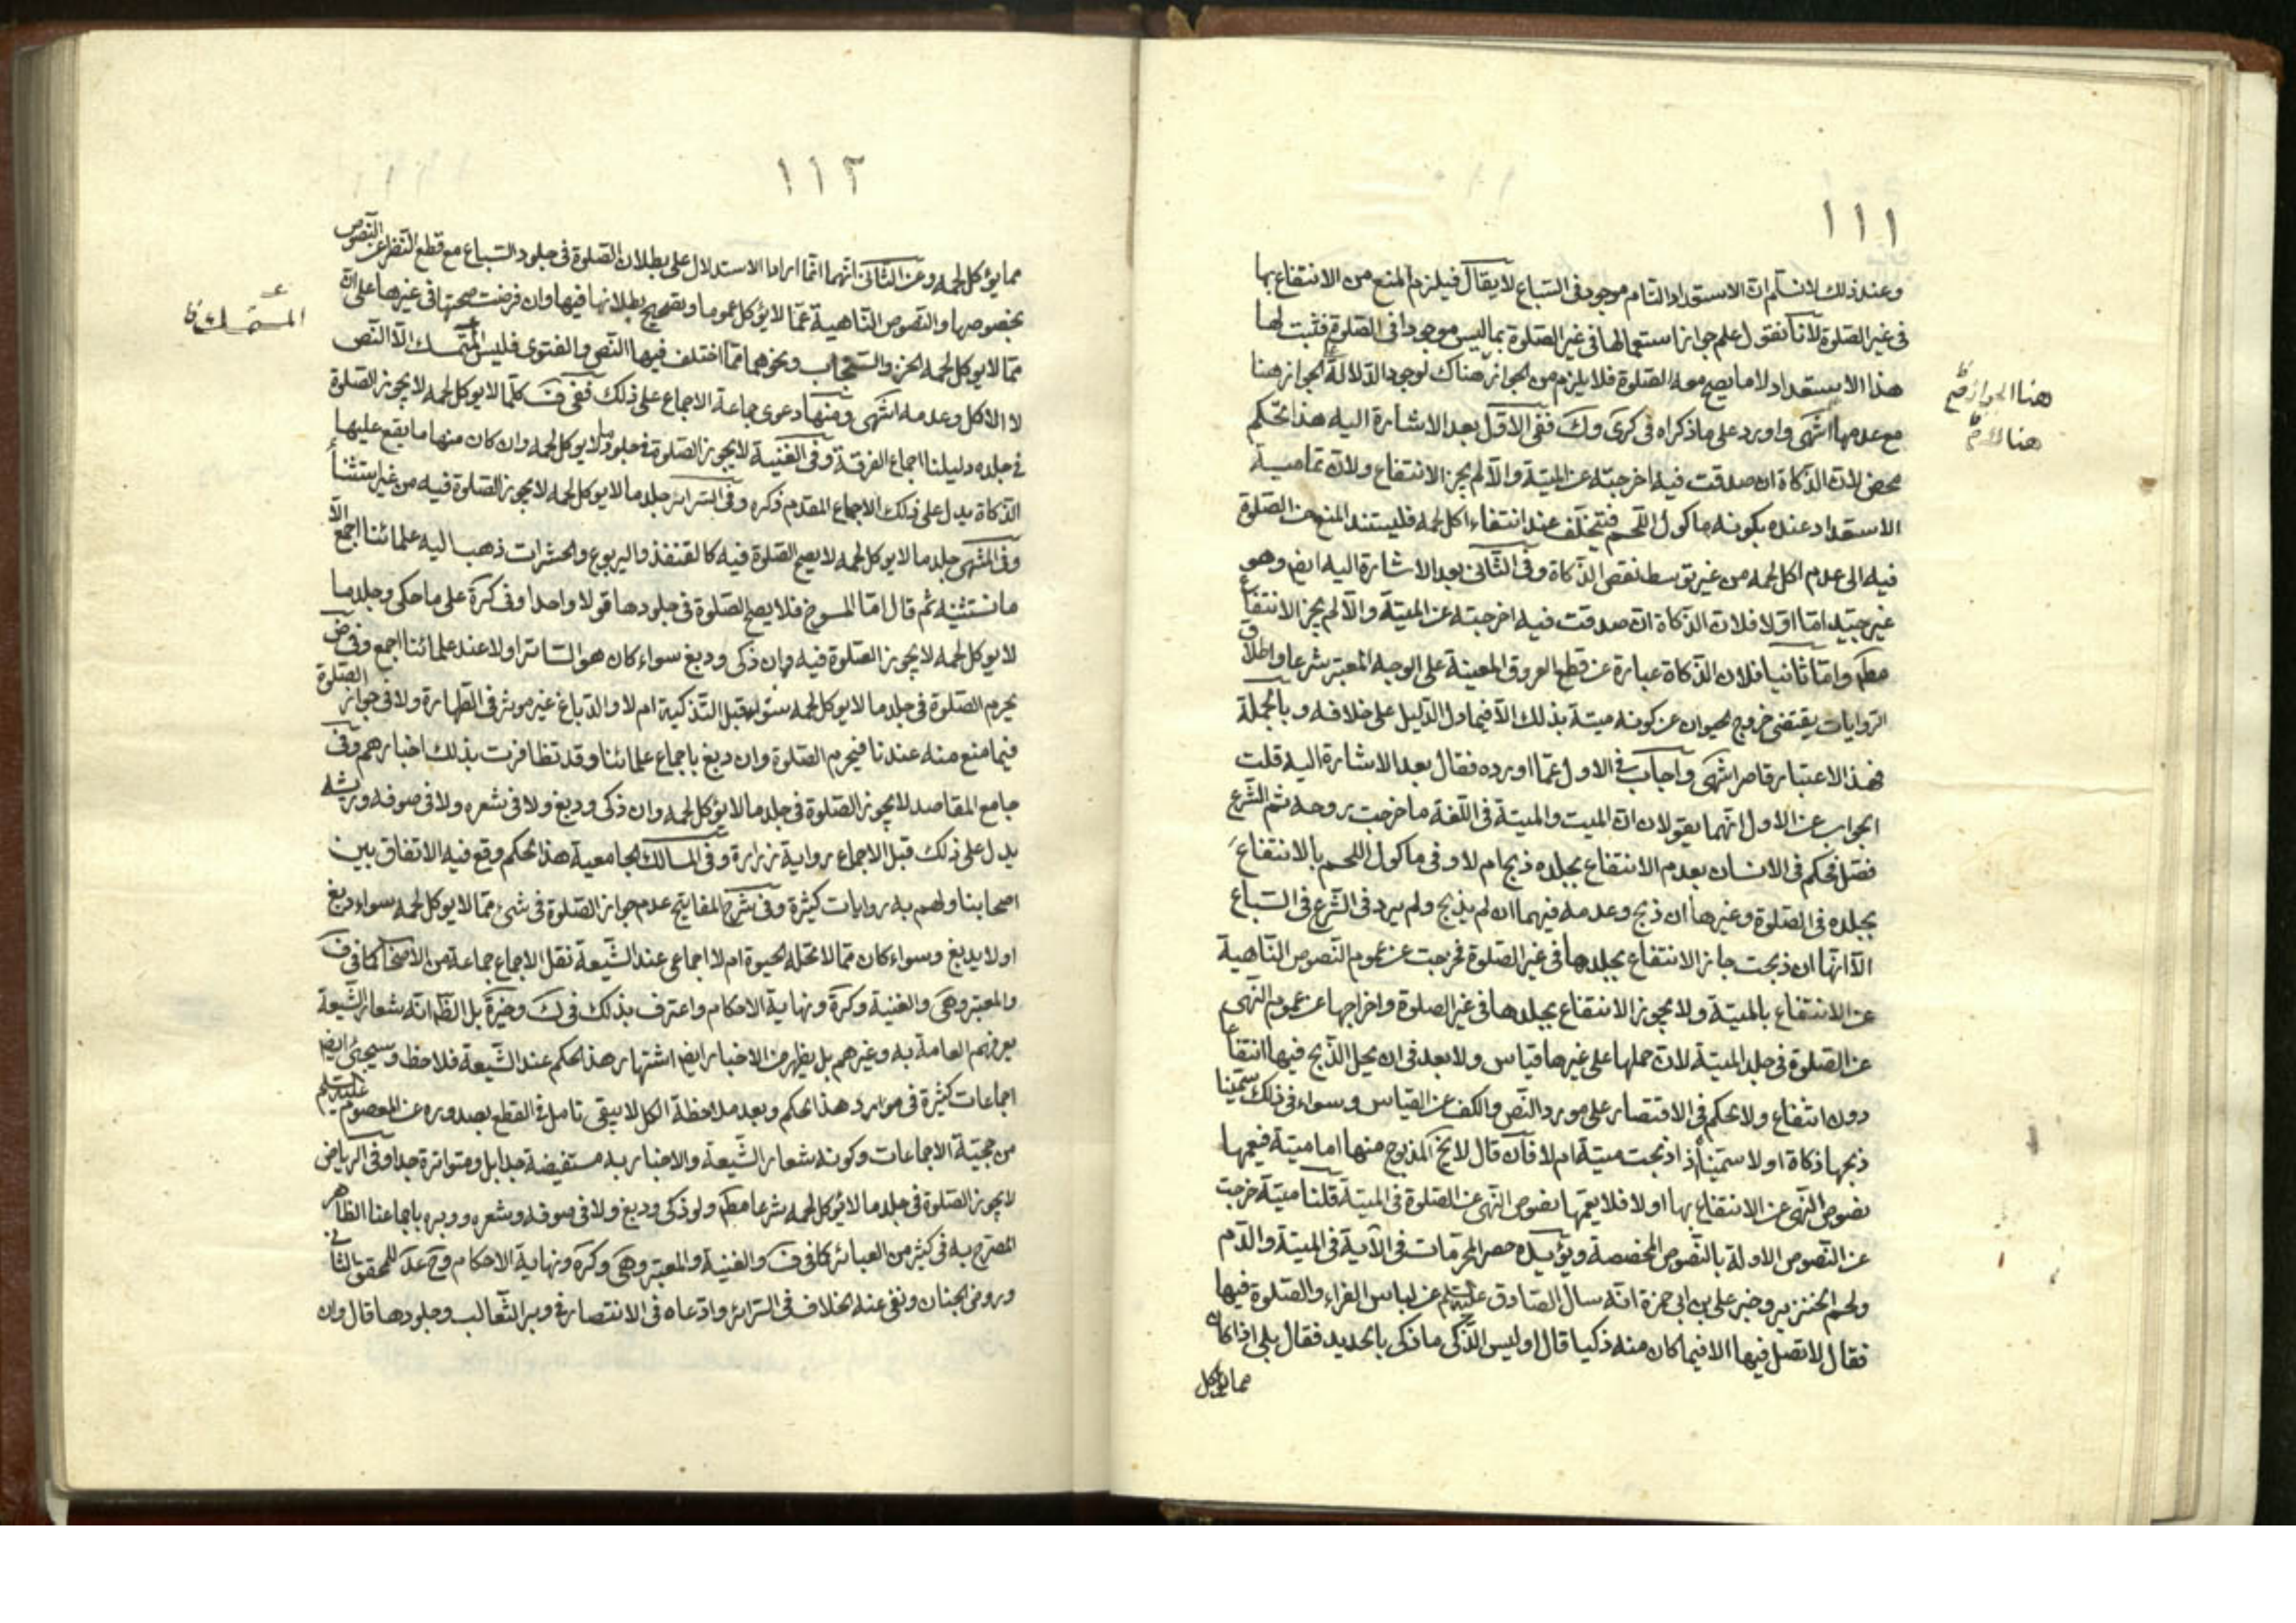 ١١١
وعند ذلك لا نسلم ان الاستعداد التام موجود فى السباع لا يقال فيلزم المنع من الانتفاع بها
فى غير الصلوة لانا نقول علم جواز استعمالها فى غير الصلوة بما ليس موجودا فى الصلوة فثبت لها
هذا الاستعداد لا ما يصح معه الصلوة فلا يلزم من الجواز هناك لوجود الدلالة الجواز هنا
هنا الجواز
مع عدمها انتهى واورد على ما ذكراه فى كرى وك ففى الاول بعد الاشارة اليه هذا تحكم
محض لان الذكاة ان صدقت فيه اخرجته عن الميتة والا لم يجز الانتفاع ولان تمامية
الاستعداد عنده بكونه ماكول اللحم فتخلف عند انتفاء اكل لحمه فليستند المنع من الصلوة
فيه الى عدم اكل لحمه من غير توسط نقص الذكاة وفى الثانى بعد الاشارة اليه ايض وهو
غير جيد اما اولا فلان الذكاة ان صدقت فيه اخرجته عن الميتة والا لم يجز الانتفاع
مطم واما ثانيا فلان الذكاة عبارة عن قطع العروق المعينة على الوجه المعتبر شرعا واطلاق
الروايات يقتضى خروج الحيوان عن كونه ميتة بذلك الا فيما دل الدليل على خلافه وبالجملة
فهذا الاعتبار قاصر انتهى واجاب فى الاول عما اورده فقال بعد الاشارة اليه قلت
الجواب عن الاول انهما يقولان ان الميت والميتة فى اللغة ما خرجت روحه ثم الشرع
فصل فحكم فى الانسان بعدم الانتفاع بجلده ذبح ام لا وفى ماكول اللحم بالانتفاع
بجلده فى الصلوة وغيرها ان ذبح وعدمه فيهما ان لم يذبح ولم يرد فى الشرع فى السباع
الا انها ان ذبحت جاز الانتفاع بجلدها فى غير الصلوة فخرجت عن عموم النصوص الناهية
عن الانتفاع بالميتة ولا يجوز الانتفاع بجلدها فى غير الصلوة واخراجها عن عموم النهى
عن الصلوة فى جلد الميتة لان حملها على غيرها قياس ولا بعد فى ان يحل الذبح فيها انتفاعا
دون انتفاع ولا تحكم فى الاقتصار على مورد النص والكف عن القياس وسواء فى ذلك سمينا
ذبحها ذكاة او لا سمينا اذا ذبحت ميتة ام لا فان قال لا يخ المذبوح منها اما ميتة فيعمها
نصوص النهى عن الانتفاع بها او لا فلا يعمها نصوص النهى عن الصلوة فى الميتة قلنا ميتة خرجت
عن النصوص الاولة بالنصوص المخصصة ويؤيده حصر المحرمات فى الآية فى الميتة والدم
ولحم الخنزير وخبر على بن ابى حمزة انه سال الصادق عليه السلام عن لباس الفراء والصلوة فيها
فقال لا تصل فيها الا فيما كان منه ذكيا قال اوليس الذكى ما ذكى بالحديد فقال بلى اذا كان
مما يؤكل
١١٢
مما يؤكل لحمه وعن الثانى انهما انما ارادا الاستدلال على بطلان الصلوة فى جلود السباع مع قطع النظر عن النصوص
بخصوصها والنصوص الناهية عما لا يؤكل عموما وتصحيح بطلانها فيها وان فرضت صحتها فى غيرها على ان
المتمسك
مما لا يؤكل لحمه الخز والسنجاب ونحوهما مما اختلف فيها النص والفتوى فليس المتمسك الا النص
لا الاكل وعدمه انتهى ومنها دعوى جماعة الاجماع على ذلك ففى ف كلما لا يؤكل لحمه لا يجوز الصلوة
فى جلده دليلنا اجماع الفرقة وفى الغنية لا يجوز الصلوة فى جلود ما لا يؤكل لحمه وان كان منها ما يقع عليها
الذكاة يدل على ذلك الاجماع المقدم ذكره وفى السرائر جلد ما لا يؤكل لحمه لا يجوز الصلوة فيه من غير استثناء
وفى المنتهى جلد ما لا يؤكل لحمه لا يصح الصلوة فيه كالقنفذ واليربوع والحشرات ذهب اليه علمائنا اجمع الا
ما نستثنيه ثم قال اما المسوخ فلا يصح الصلوة فى جلودها قولا واحدا وفى كرة على ما حكى وجلد ما
لا يؤكل لحمه لا يجوز الصلوة فيه وان ذكى ودبغ سواء كان هو الساتر او لا عند علمائنا اجمع وفى ض
يحرم الصلوة فى جلد ما لا يؤكل لحمه سواء يقبل التذكية ام لا والدباغ غير موثر فى الطهارة ولا فى جواز الصلوة
فيما منع منه عندنا فيحرم الصلوة وان دبغ باجماع علمائنا وقد تظافرت بذلك اخبارهم وفى
جامع المقاصد لا يجوز الصلوة فى جلد ما لا يؤكل لحمه وان ذكى ودبغ ولا فى شعره ولا فى صوفه وريشه
يدل على ذلك قبل الاجماع رواية زرارة وفى المسالك الجامعية هذا الحكم وقع فيه الاتفاق بين
اصحابنا ولهم به روايات كثيرة وفى شرح المفاتيح عدم جواز الصلوة فى شئ مما لا يؤكل لحمه سواء دبغ
او لا يدبغ وسواء كان مما لا تحله الحيوة ام لا اجماعى عند الشيعة نقل الاجماع جماعة من الاصحاب كما فى ف
والمعتبر وهى والغنية وكرة ونهاية الاحكام واعترف بذلك فى ك وخيرة بل الظ انه شعار الشيعة
يعرفهم العامة به وغيرهم بل يظهر من الاخبار ايض اشتهار هذا الحكم عند الشيعة فلاحظ وسيجئ ايض
اجماعات كثيرة فى موارد هذا الحكم وبعد ملاحظة الكل لا يبقى تامل فى القطع بصدوره عن المعصوم عليه السلام
من حجية الاجماعات وكونه شعار الشيعة والاخبار به مستفيضة جدا بل ومتواترة جدا وفى الرياض
لا يجوز الصلوة فى جلد ما لا يؤكل لحمه شرعا مطم ولو ذكى ودبغ ولا فى صوفه وشعره ووبره باجماعنا الظاهر
المصرح به فى كثير من العبائر كما فى ف والغنية والمعتبر وهى وكرة ونهاية الاحكام وشرح عد للمحقق الثانى
وروض الجنان ونفى عنه الخلاف فى السرائر وادعاه فى الانتصار فى وبر الثعالب وجلودها قال وان